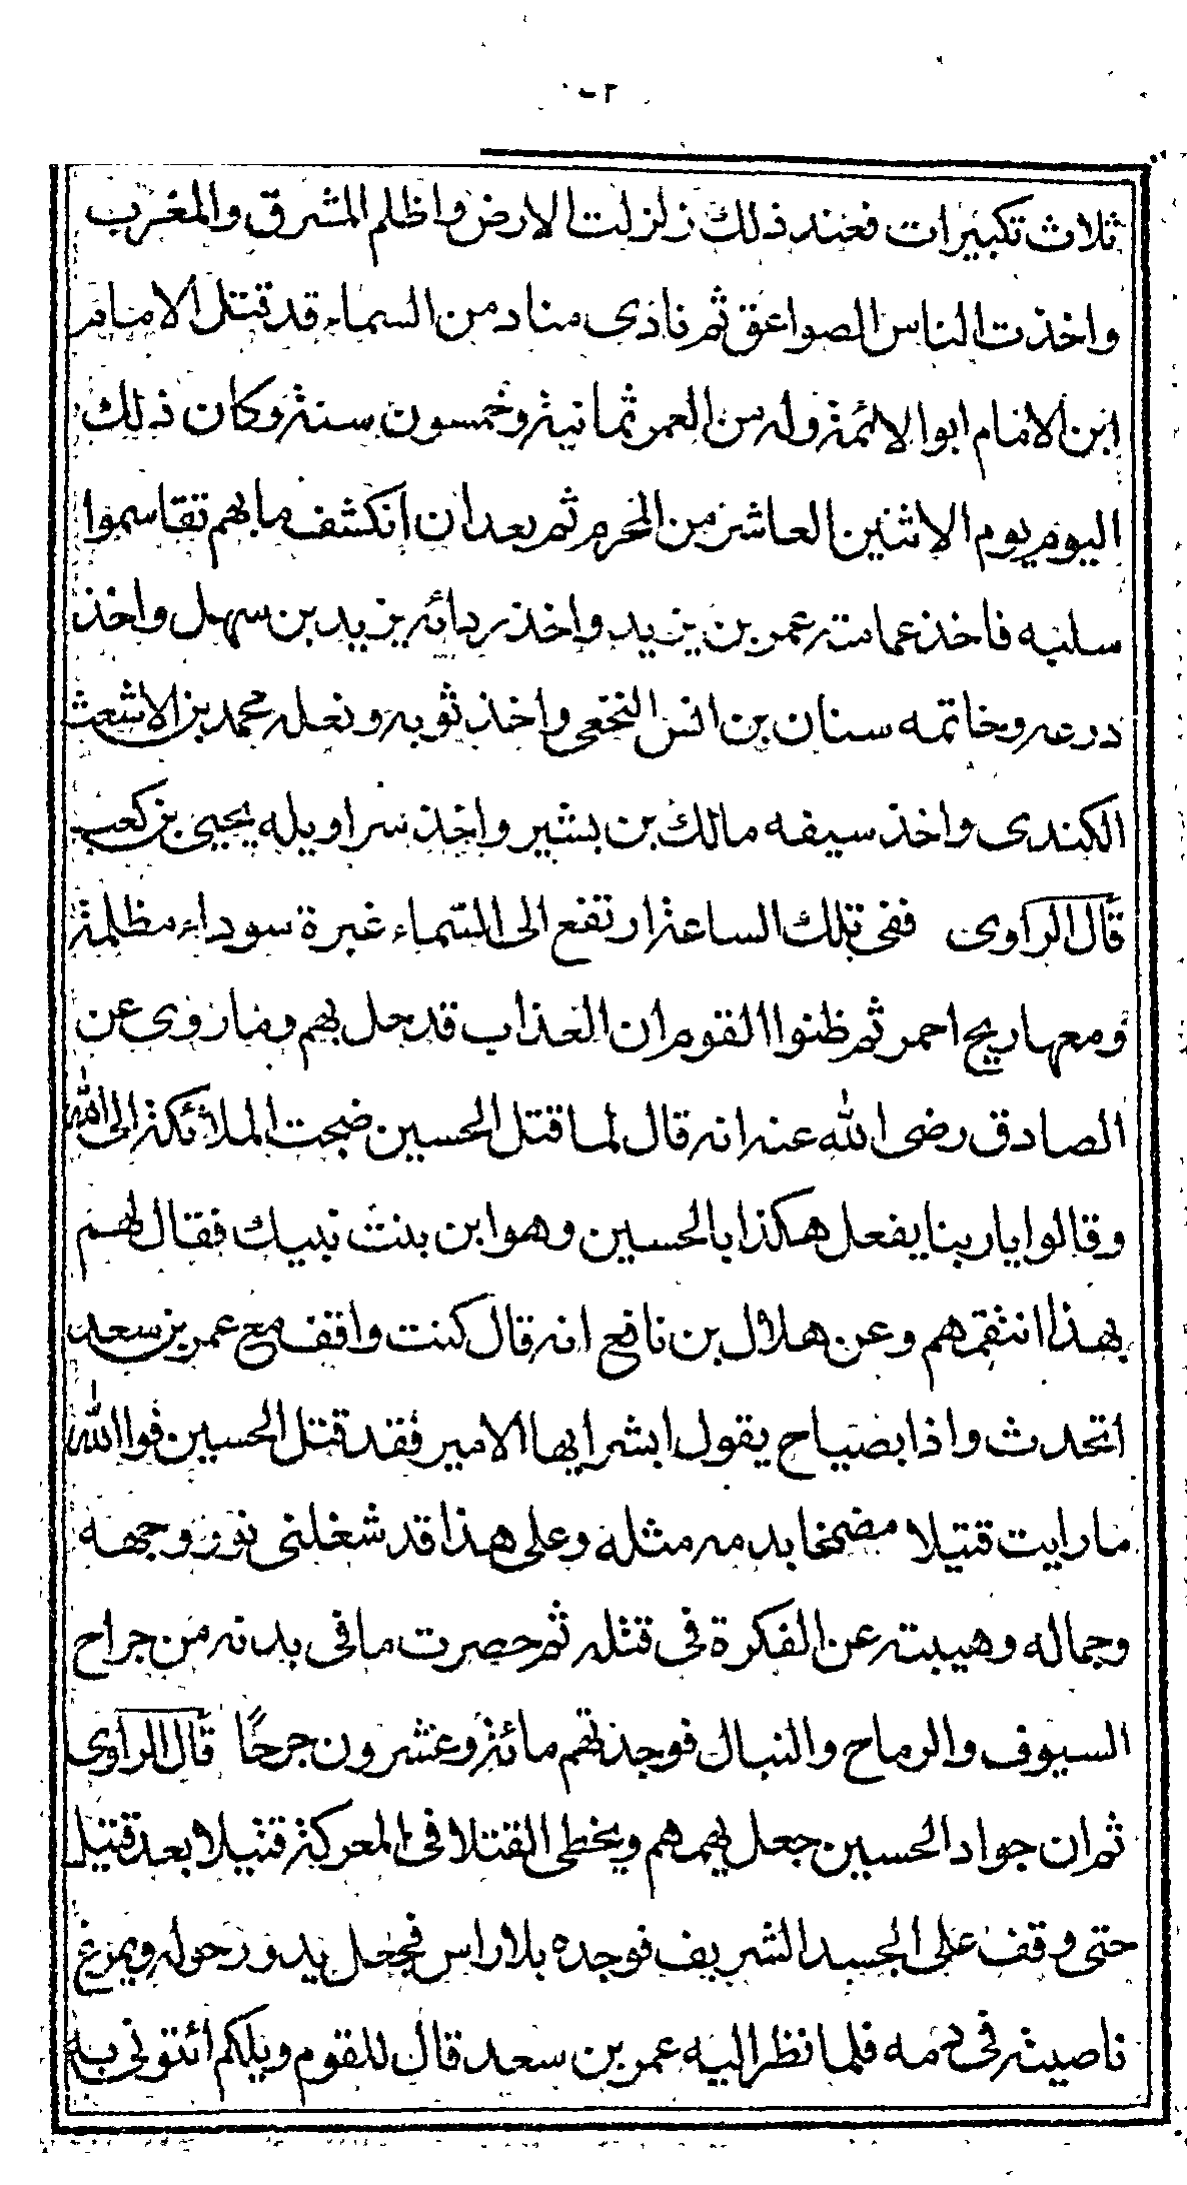 ثلاث تكبيرات فعند ذلك زلزلت الارض واظلم المشرق والمغرب
واخذت الناس الصواعق ثم نادى مناد من السماء قد قتل الامام
ابن الامام ابوا الائمة وله من العمر ثمانية وخمسون سنة وكان ذلك
اليوم يوم الاثنين العاشر من المحرم ثم بعد ان انكشف ما بهم تقاسموا
سلبه فاخذ عمامته عمر بن يزيد واخذ ردائه يزيد بن سهل واخذ
درعه وخاتمه سنان بن انس النخعى واخذ ثوبه ونعله محمد بن الاشعث
الكندى واخذ سيفه مالك بن بشير واخذ سراويله يحيى بن كعب
قال الراوى ففى تلك الساعة ارتفع الى السماء غبرة سوداء مظلمة
ومعها ريح احمر ثم ظنوا القوم ان العذاب قد حل بهم وما روى عن
الصادق رضى الله عنه انه قال لما قتل الحسين ضجت الملائكة الى الله
وقالوا يا ربنا يفعل هكذا بالحسين وهو ابن بنت نبيك فقال لهم
بهذا انتقم هم وعن هلال بن نافع انه قال كنت واقف مع عمر بن سعد
اتحدث واذا بصياح يقول ابشر ايها الامير فقد قتل الحسين فوا الله
ما رايت قتيلا مضمخا بدمه مثله وعلى هذا قد شغلنى نور وجهه
وجماله وهيبته عن الفكرة فى قتله ثم حصرت ما فى بدنه من جراح
السيوف والرماح والنبال فوجدتهم مائة وعشرون جرحًا قال الراوى
ثم ان جواد الحسين جعل يهمهم ويخطى القتلا فى المعركة قتيلا بعد قتيل
حتى وقف على الجسد الشريف فوجده بلا راس فجعل يدور حوله ويمرغ
ناصيته فى دمه فلما نظر اليه عمر بن سعد قال للقوم ويلكم ائتونى به